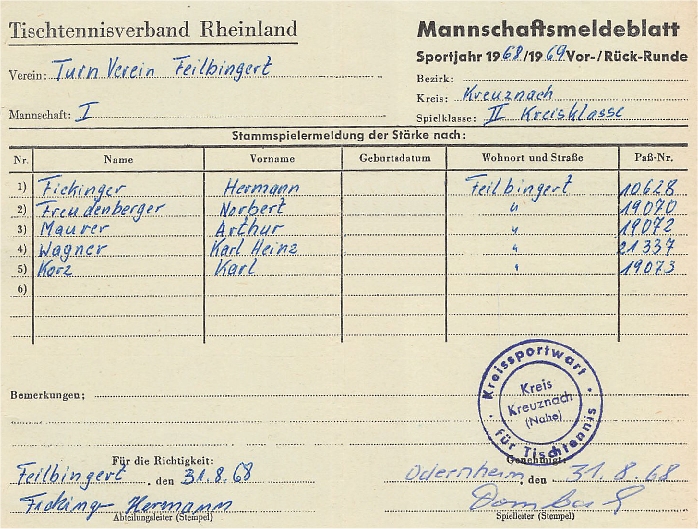 Tischtennisverband Rheinland
Mannschaftsmeldeblatt
Sportjahr 1968/1969 Vor-/Rück-Runde
Verein: Turn Verein Feilbingert
Bezirk:
Kreis: Kreuznach
Mannschaft: I
Spielklasse: II Kreisklasse
Stammspielermeldung der Stärke nach:
Nr. Name Vorname Geburtsdatum Wohnort und Straße Paß-Nr.
1) Fickinger Hermann Feilbingert 10628
2) Freudenberger Norbert " 19070
3) Maurer Arthur " 19072
4) Wagner Karl Heinz " 21337
5) Korz Karl " 19073
6)
Bemerkungen:
Kreissportwart
Kreis
Kreuznach
(Nahe)
für Tischtennis
Für die Richtigkeit:
Genehmigt:
Feilbingert, den 31.8.68
Odernheim, den 31.8.68
Ficking Hermann
Abteilungsleiter (Stempel)
Spielleiter (Stempel)